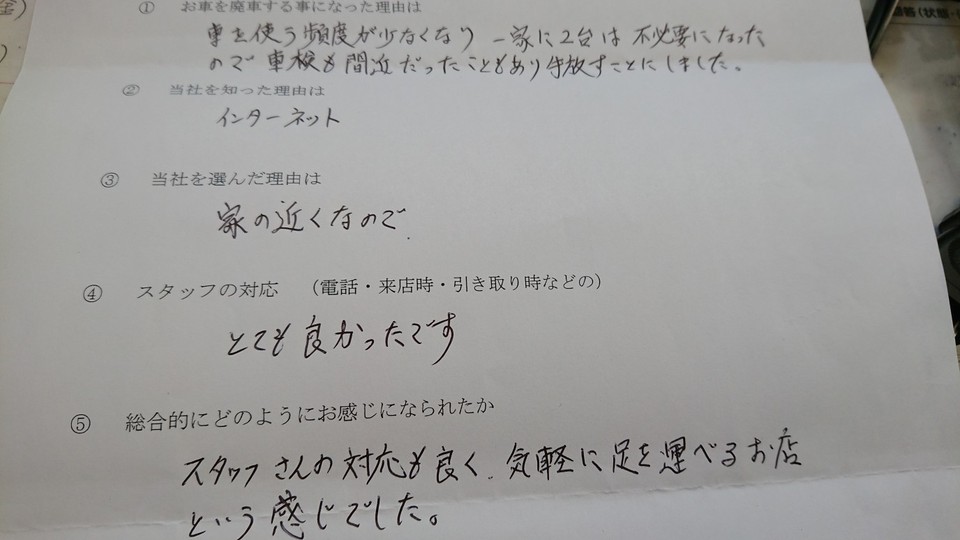 ① お車を廃車する事になった理由は
車を使う頻度が少なくなり 一家に2台は不必要になった
ので車検も間近だったこともあり手放すことにしました。
② 当社を知った理由は
インターネット
③ 当社を選んだ理由は
家の近くなので.
④ スタッフの対応 （電話・来店時・引き取り時などの）
とても良かったです
⑤ 総合的にどのようにお感じになられたか
スタッフさんの対応も良く、気軽に足を運べるお店
という感じでした。